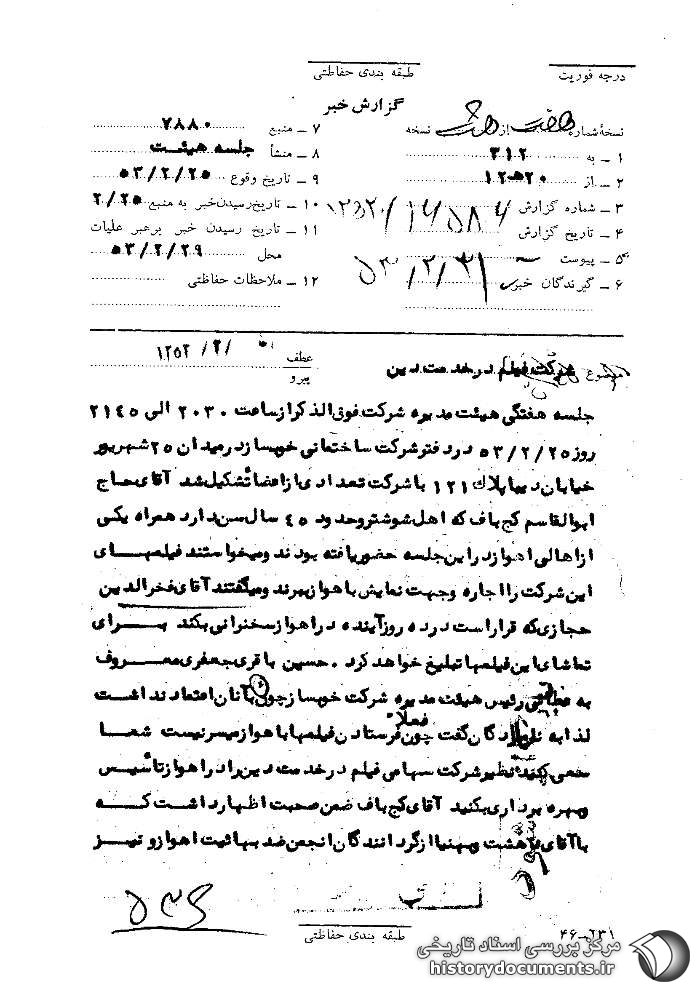 درجه فوریت
طبقه بندی حفاظتی
گزارش خبر
نسخهٔ شماره هفت از هشت نسخه
۱ ـ به ۳۱۲
۲ ـ از ۲۰ه۱۲
۳ ـ شماره گزارش
۴ ـ تاریخ گزارش
۵ ـ پیوست ۵۳/۲/۳۱
۶ ـ گیرندگان خبر
۷ ـ منبع ۷۸۸۰
۸ ـ منشأ جلسه هیئت
۹ ـ تاریخ وقوع ۵۳/۲/۲۵
۱۰ ـ تاریخ رسیدن خبر به منبع ۲/۲۵
۱۱ ـ تاریخ رسیدن خبر برهبر عملیات
محل ۵۳/۲/۲۹
۱۲ ـ ملاحظات حفاظتی
موضوع شرکت فیلم درخدمت دین
عطف
پیرو
جلسه هفتگی هیئت مدیره شرکت فوق الذکر از ساعت ۲۰۳۰ الی ۲۱۴۵
روز ۵۳/۲/۲۵ در دفتر شرکت ساختمانی خوبساز در میدان ۲۵ شهریور
خیابان دیبا پلاک ۱۲۱ با شرکت تعدادی از اعضا تشکیل شد آقای حاج
ابوالقاسم کج باف که اهل شوشتر و حدود ۴۵ سال سن دارد همراه یکی
از اهالی اهواز در این جلسه حضور یافته بودند و میخواستند فیلمهای
این شرکت را اجاره و جهت نمایش باهواز ببرند و میگفتند آقای فخرالدین
حجازی که قرار است در ده روز آینده در اهواز سخنرانی بکند برای
تماشای این فیلمها تبلیغ خواهد کرد . حسین باقری جعفری معروف
به رئیس هیئت مدیره شرکت خوبساز چون بآنان اعتماد نداشت
لذا به گفت چون فرستادن فیلمها باهواز فعلاً میسر نیست شما
سعی بکنید نظیر شرکت سهامی فیلم در خدمت دین را در اهواز تأسیس
و بهره برداری بکنید آقای کج باف ضمن صحبت اظهار داشت که
با آقای از گردانندگان انجمن ضد بهائیت اهواز و نیز
طبقه بندی حفاظتی
۴۶-۲۳۱
مرکز بررسی اسناد تاریخی
historydocuments.ir